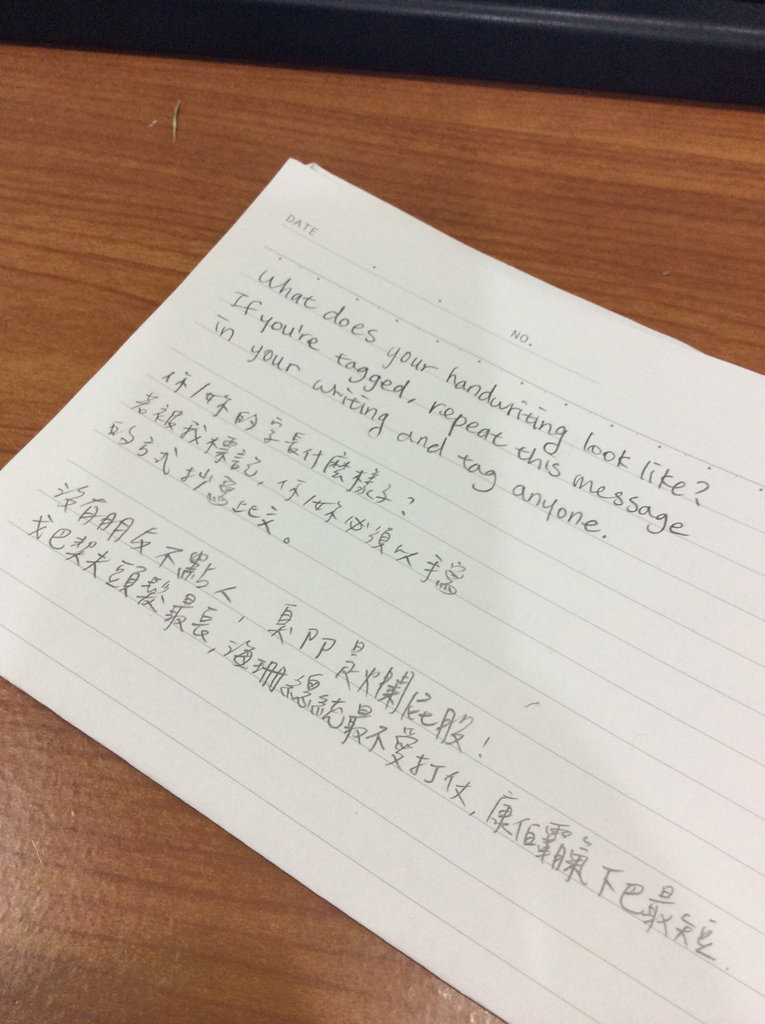 DATE
NO.
What does your handwriting look like?
If you're tagged, repeat this message
in your writing and tag anyone.
你/妳的字長什麼樣子？
若被我標記，你/妳必須以手寫
的方式抄寫此文。
沒有朋友不點人，臭PP是爛屁股！
戈巴契夫頭髮最長，海珊總統最不愛打仗，康伯霸氣下巴最短.